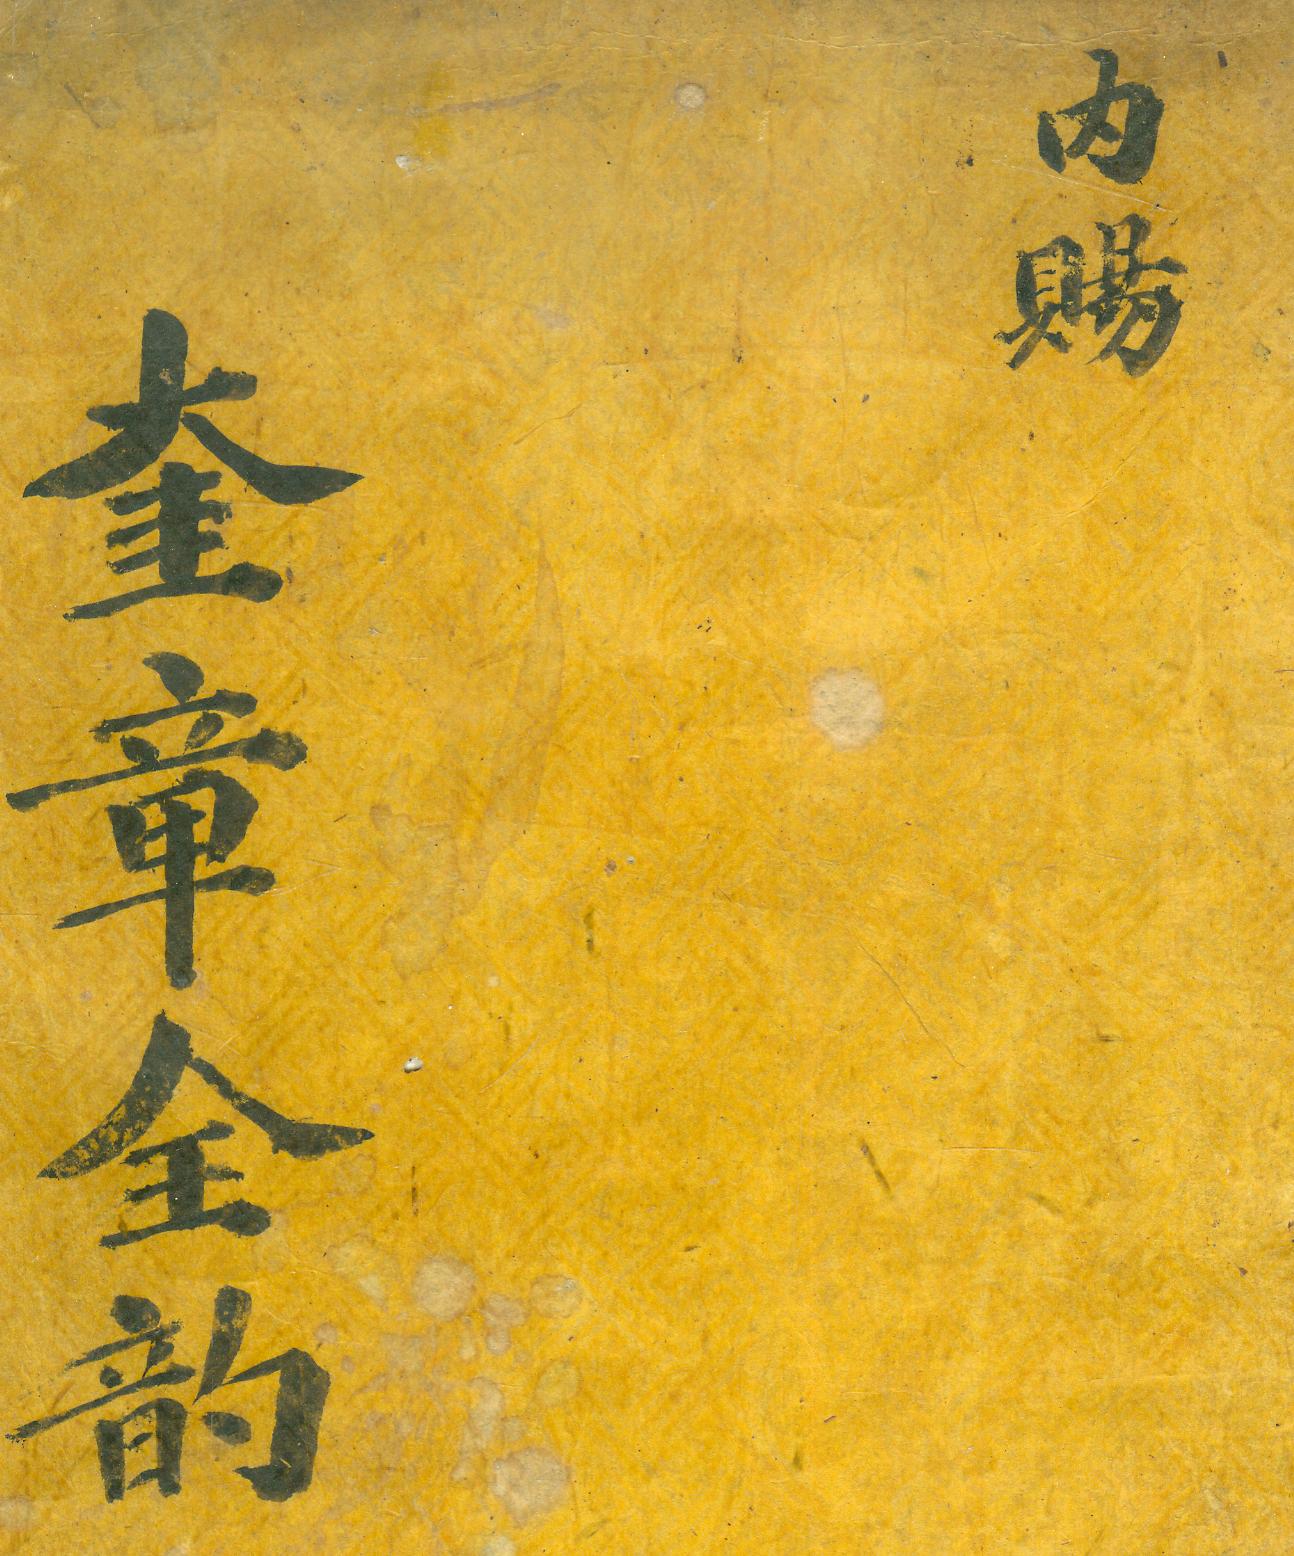 内賜
奎章全韵